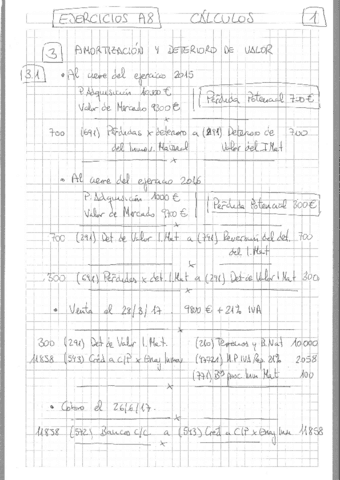 EJERCICIOS A8 CÁLCULOS 1
3 AMORTIZACIÓN Y DETERIORO DE VALOR
3.1 • Al cierre del ejercicio 2015
P. Adquisición 10.000 €
Valor de Mercado 9300 €
Pérdida Potencial 700 €
700 (691) Pérdidas x deterioro a (291) Deterioro de 700
del Inmov. Material Valor del I. Mat
• Al cierre del ejercicio 2016
P. Adquisición 10000 €
Valor de Mercado 9700 €
Pérdida Potencial 300 €
700 (291) Det de Valor I. Mat a (791) Reversión del det. 700
del I. Mat
300 (691) Pérdidas x det. I. Mat a (291) Det de Valor I. Mat 300
• Venta el 28/3/17 9800 € + 21% IVA
300 (291) Det de Valor I. Mat (210) Terrenos y B. Nat 10.000
11858 (543) Créd a C/P x Enaj Inmov (477) HP IVA Rep 21% 2058
(771) Bº proc. Inm. Mat 100
• Cobro el 26/6/17.
11858 (572) Bancos C/C. a (543) Créd a C/P x Enaj Inm 11858